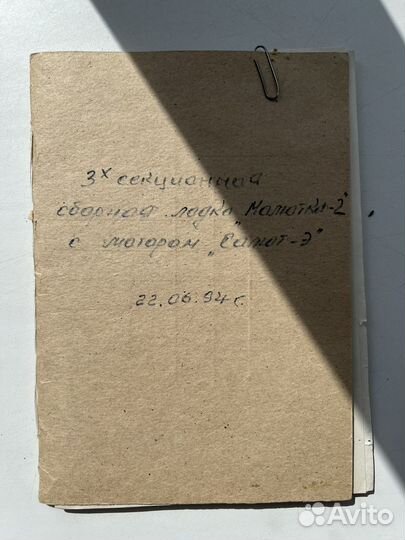 3х секционная
сборная лодка „Малютка-2"
с мотором „Салют-Э"
22.06.94г.
Avito